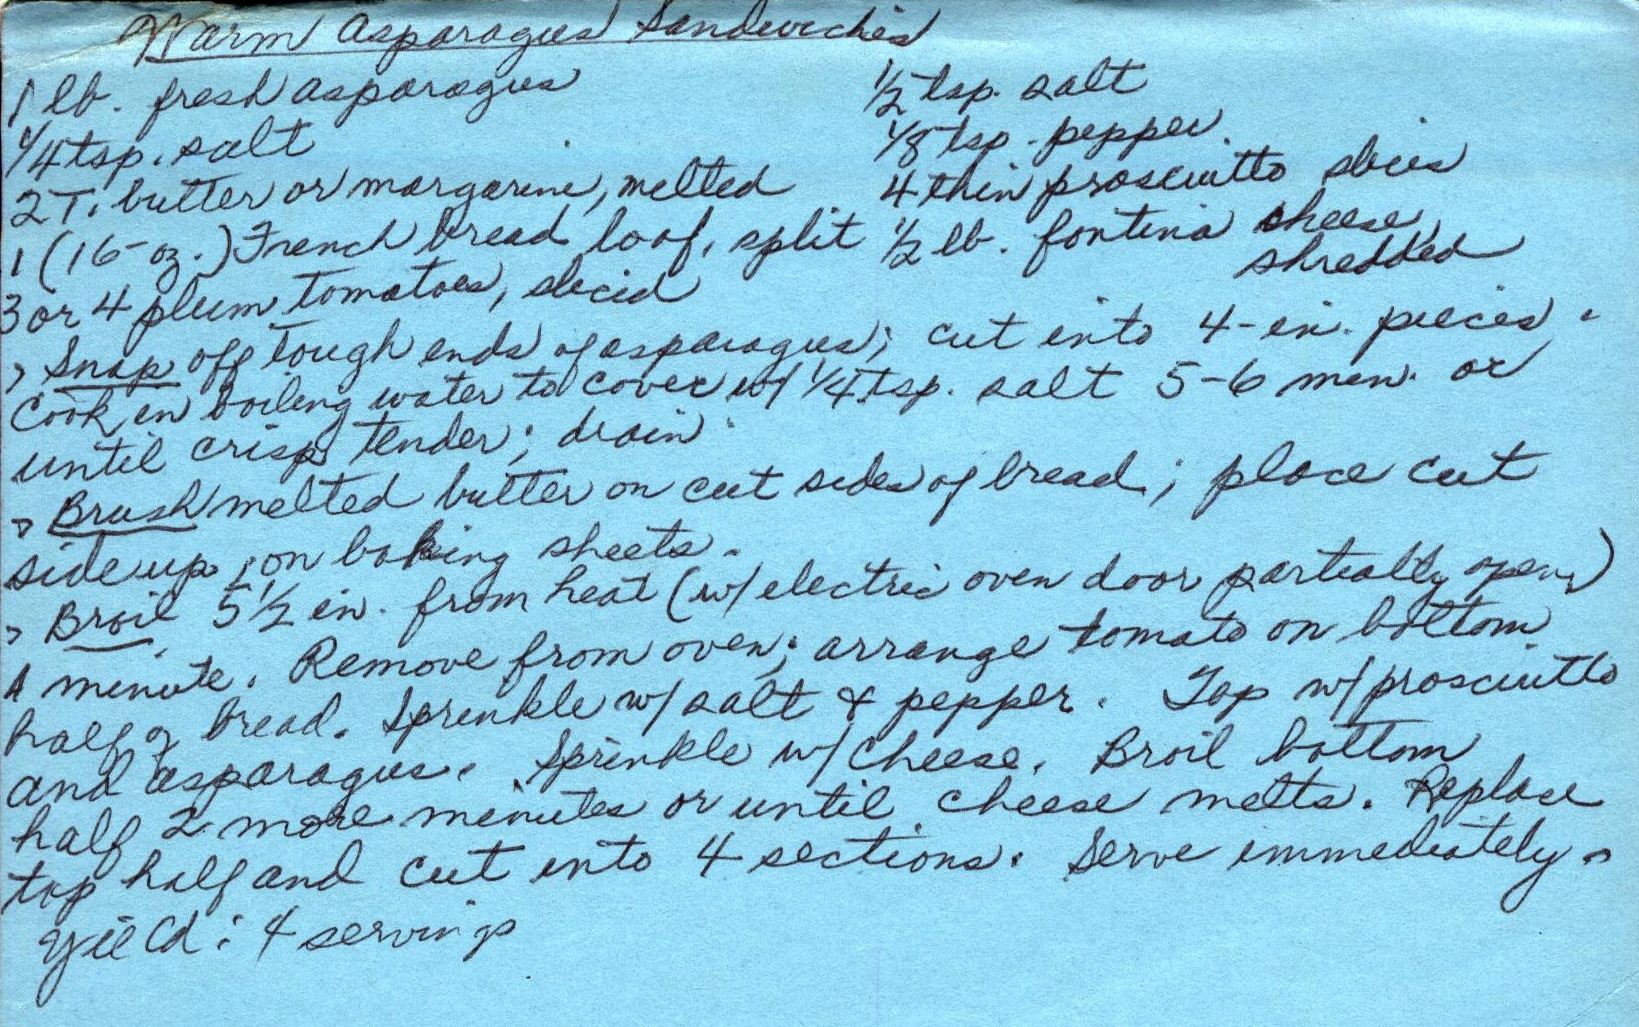 Warm Asparagus Sandwiches
1 lb. fresh asparagus
1/4 tsp. salt
2 T. butter or margarine, melted
1 (16-oz.) French bread loaf, split
3 or 4 plum tomatoes, sliced
1/2 tsp. salt
1/8 tsp. pepper
4 thin prosciutto slices
1/2 lb. fontina cheese,
shredded
> Snap off tough ends of asparagus; cut into 4-in. pieces.
Cook in boiling water to cover w/ 1/4 tsp. salt 5-6 min. or
until crisp tender; drain.
> Brush melted butter on cut sides of bread; place cut
side up, on baking sheets.
> Broil 5 1/2 in. from heat (w/ electric oven door partially open)
1 minute. Remove from oven; arrange tomato on bottom
half of bread. Sprinkle w/ salt & pepper. Top w/ prosciutto
and asparagus. Sprinkle w/ cheese. Broil bottom
half 2 more minutes or until cheese melts. Replace
top half and cut into 4 sections. Serve immediately.
Yield: 4 servings